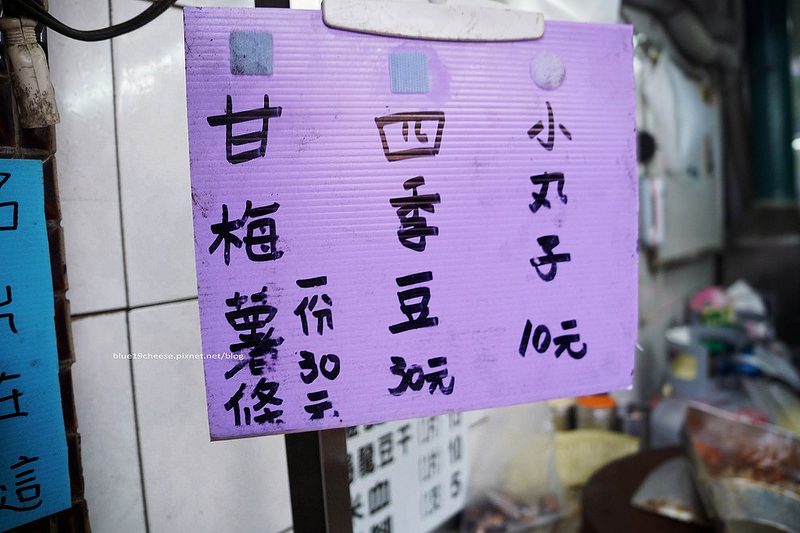 甘梅薯條
一份30元
四季豆
30元
小丸子
10元
blue19cheese.pixnet.net/blog
豆干
10
血
5